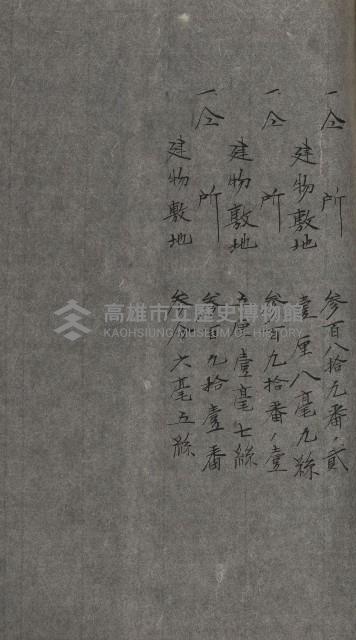 一仝所 參百八拾九番ノ貳
建物敷地 壹厘八毫九絲
一仝所 參百九拾番ノ壹
建物敷地 五厘壹毫七絲
一仝所 參百九拾壹番
建物敷地 六毫五絲
高雄市立歷史博物館
KAOHSIUNG MUSEUM OF HISTORY